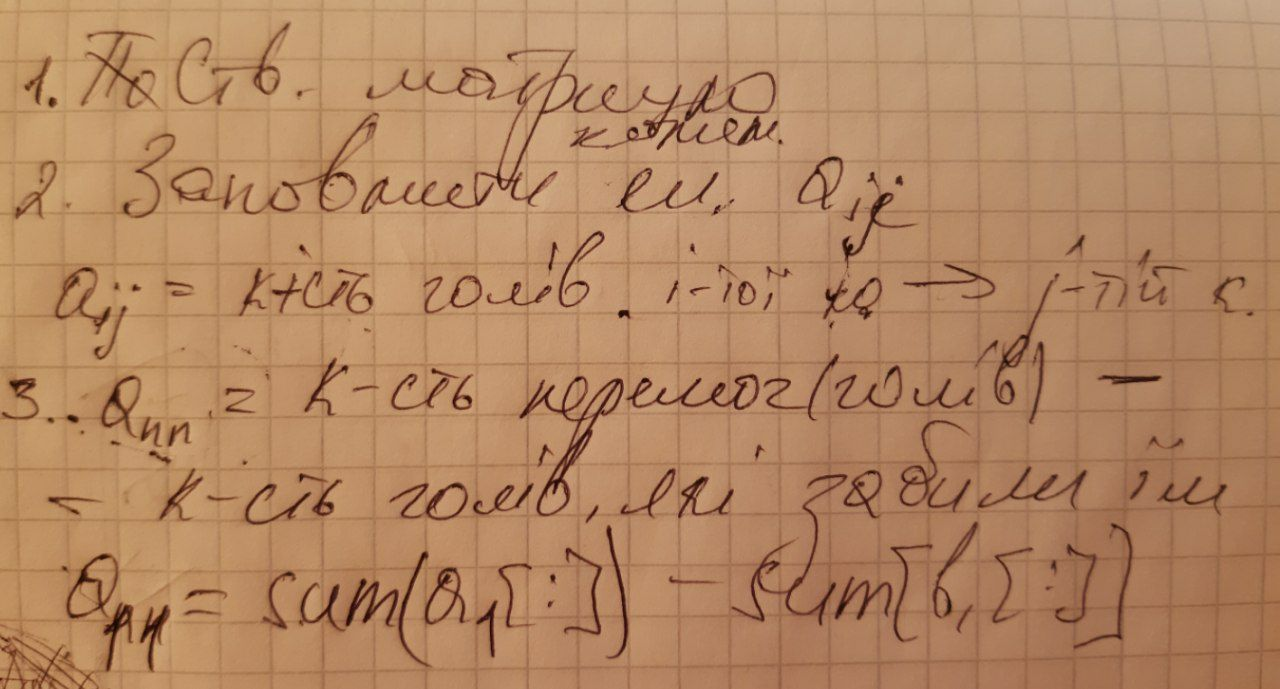 1. Ств. матрицю
кожен.
2. Заповнити ел. aij
aij = к-сть голів i-тої ко → j-тій к.
3. ann = к-сть перемог (голів) –
– к-сть голів, які забили їм
ann = sum(a1[:]) – sum[b1[:]]